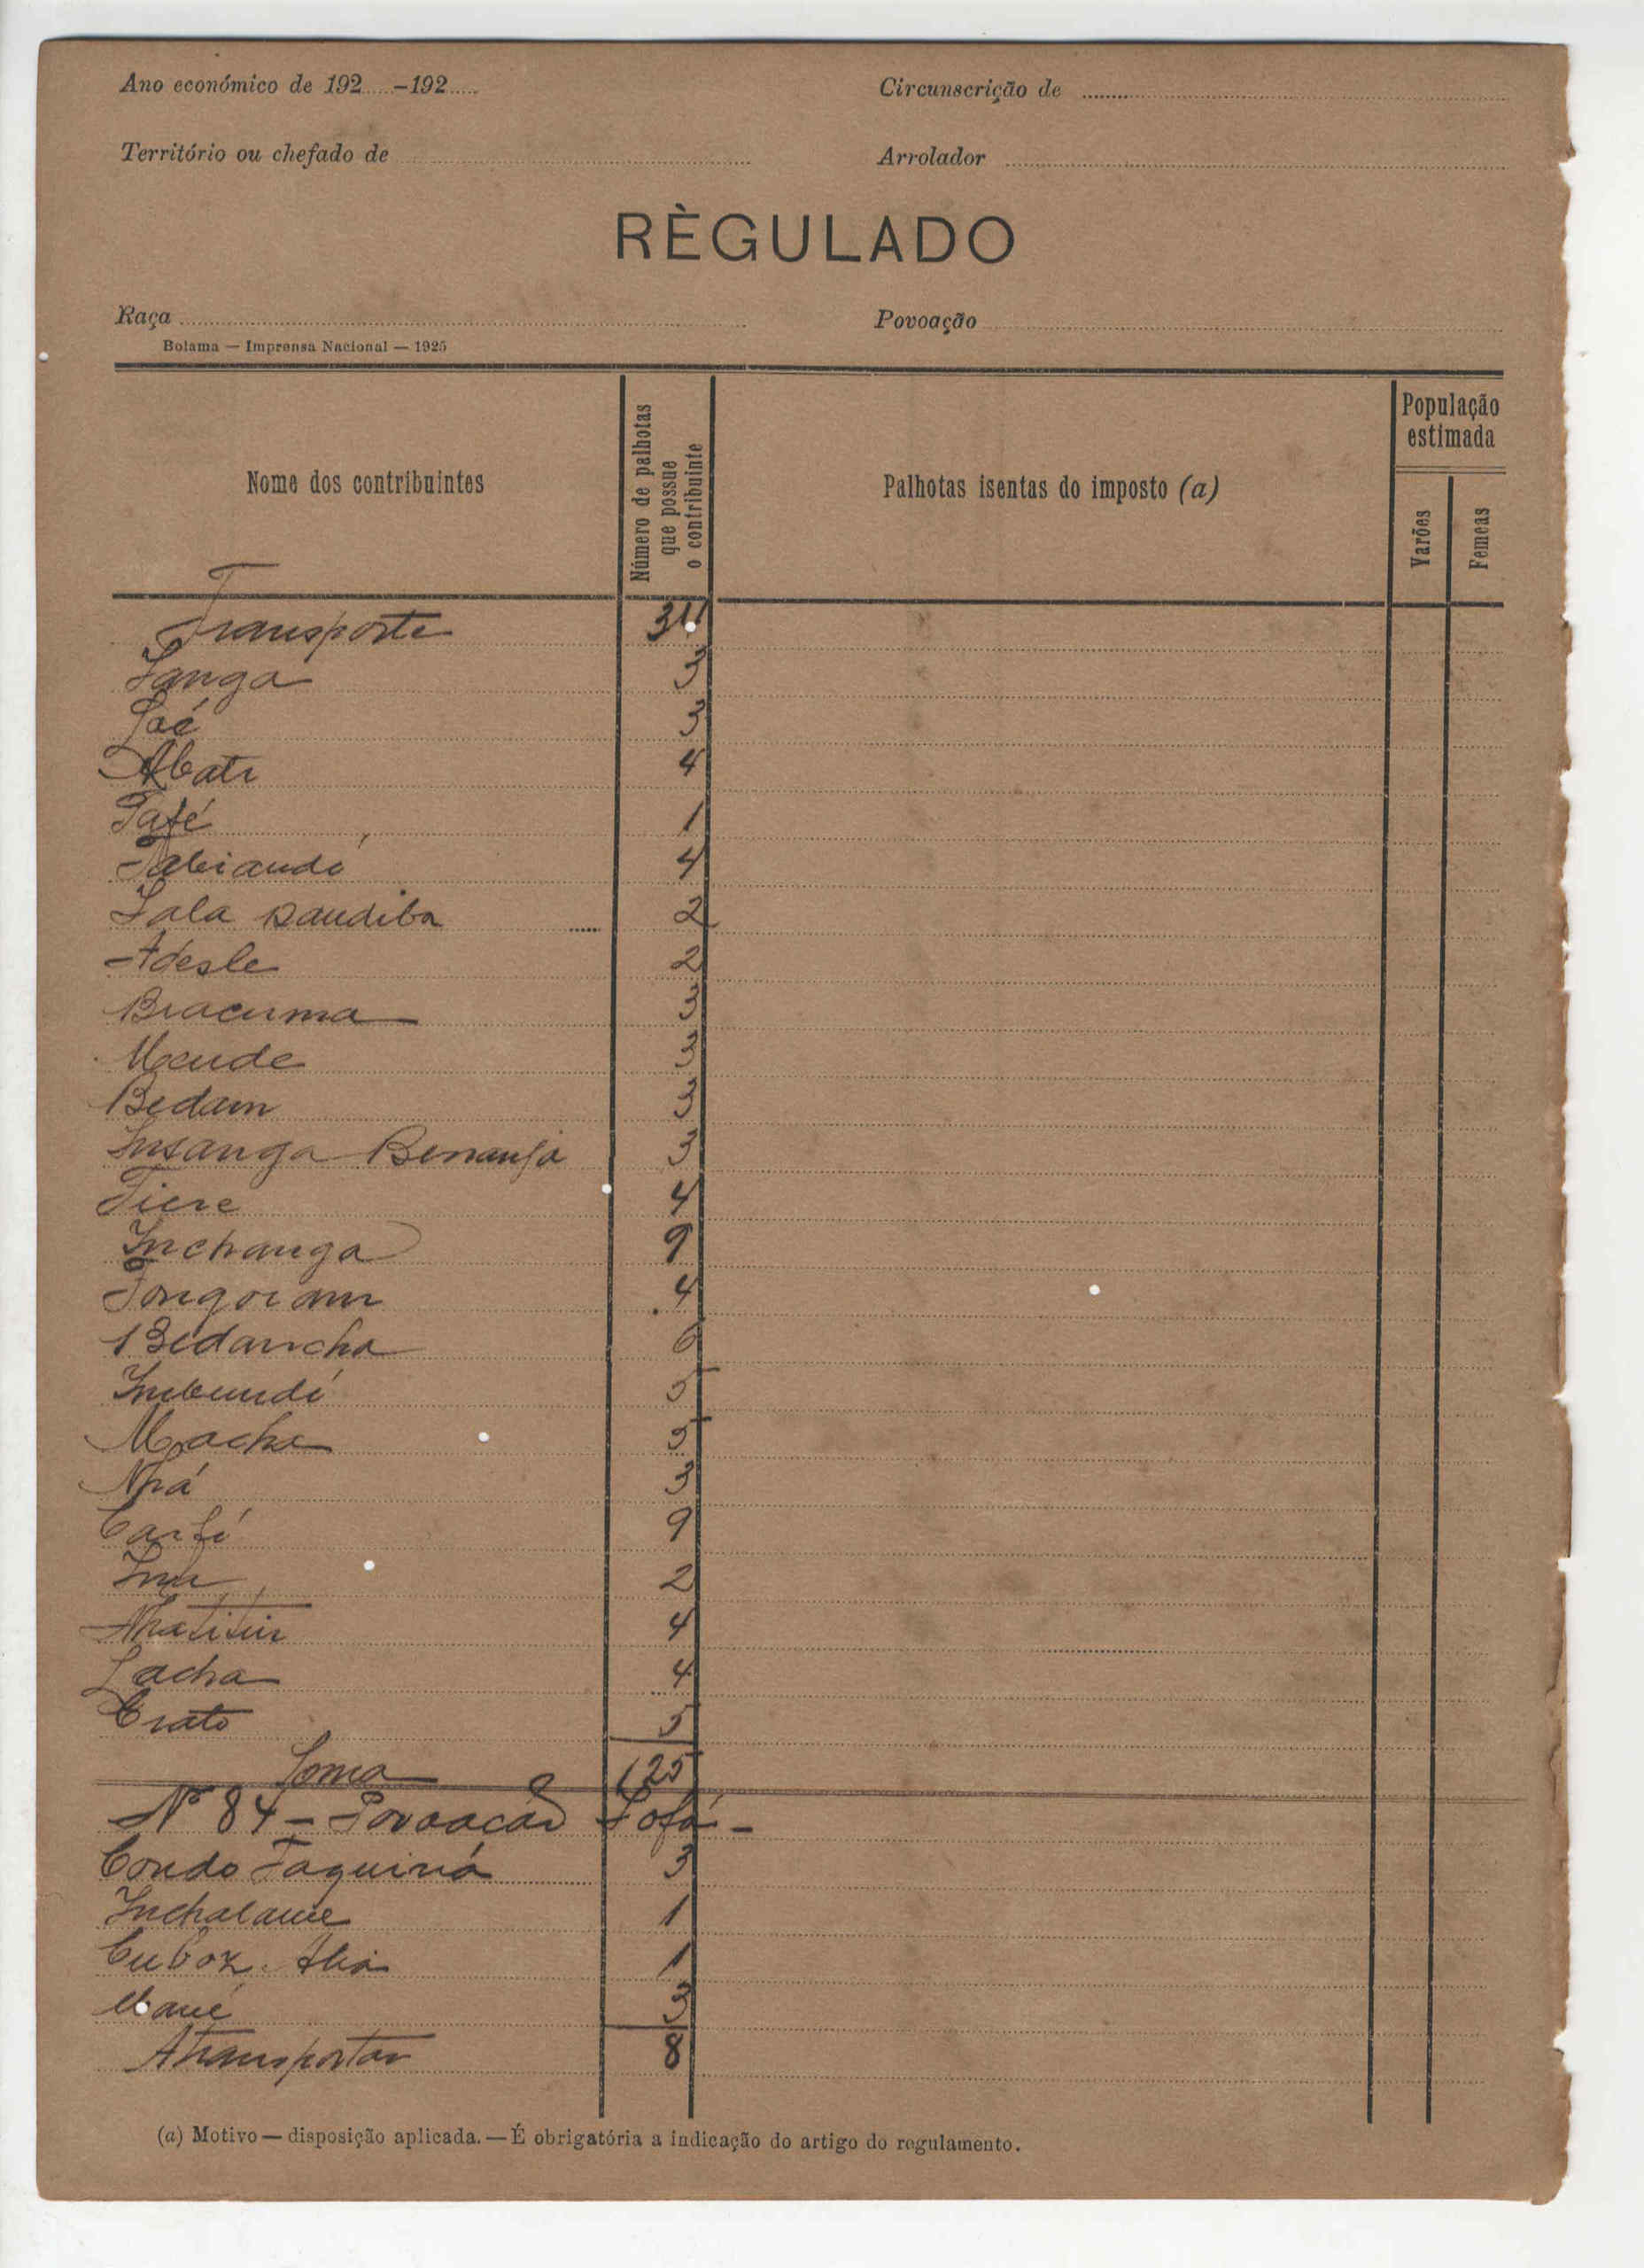 Ano económico de 192.....-192.....
Circunscrição de
Território ou chefado de
Arrolador
RÈGULADO
Raça
Povoação
Bolama — Imprensa Nacional — 1925
Nome dos contribuintes
Número de palhotas que possue o contribuinte
Palhotas isentas do imposto (a)
População estimada
Varões
Femeas
Transporte
Sanga 3
3
Abati 4
Tafé 1
4
Lala 2
Adesle 2
Bracuma 3
Mende 3
Bedam 3
Insanga 3
Tiere 4
Inchanga 9
4
Bidancha 6
Imbundé 5
Mocha 5
Nhá 3
9
2
4
Lacha 4
Crato 5
Soma 125
Nº 84 - Povoação Fofá -
Condo Faquiná 3
Inchalame 1
1
Mané 3
A transportar 8
(a) Motivo — disposição aplicada. — É obrigatória a indicação do artigo do regulamento.